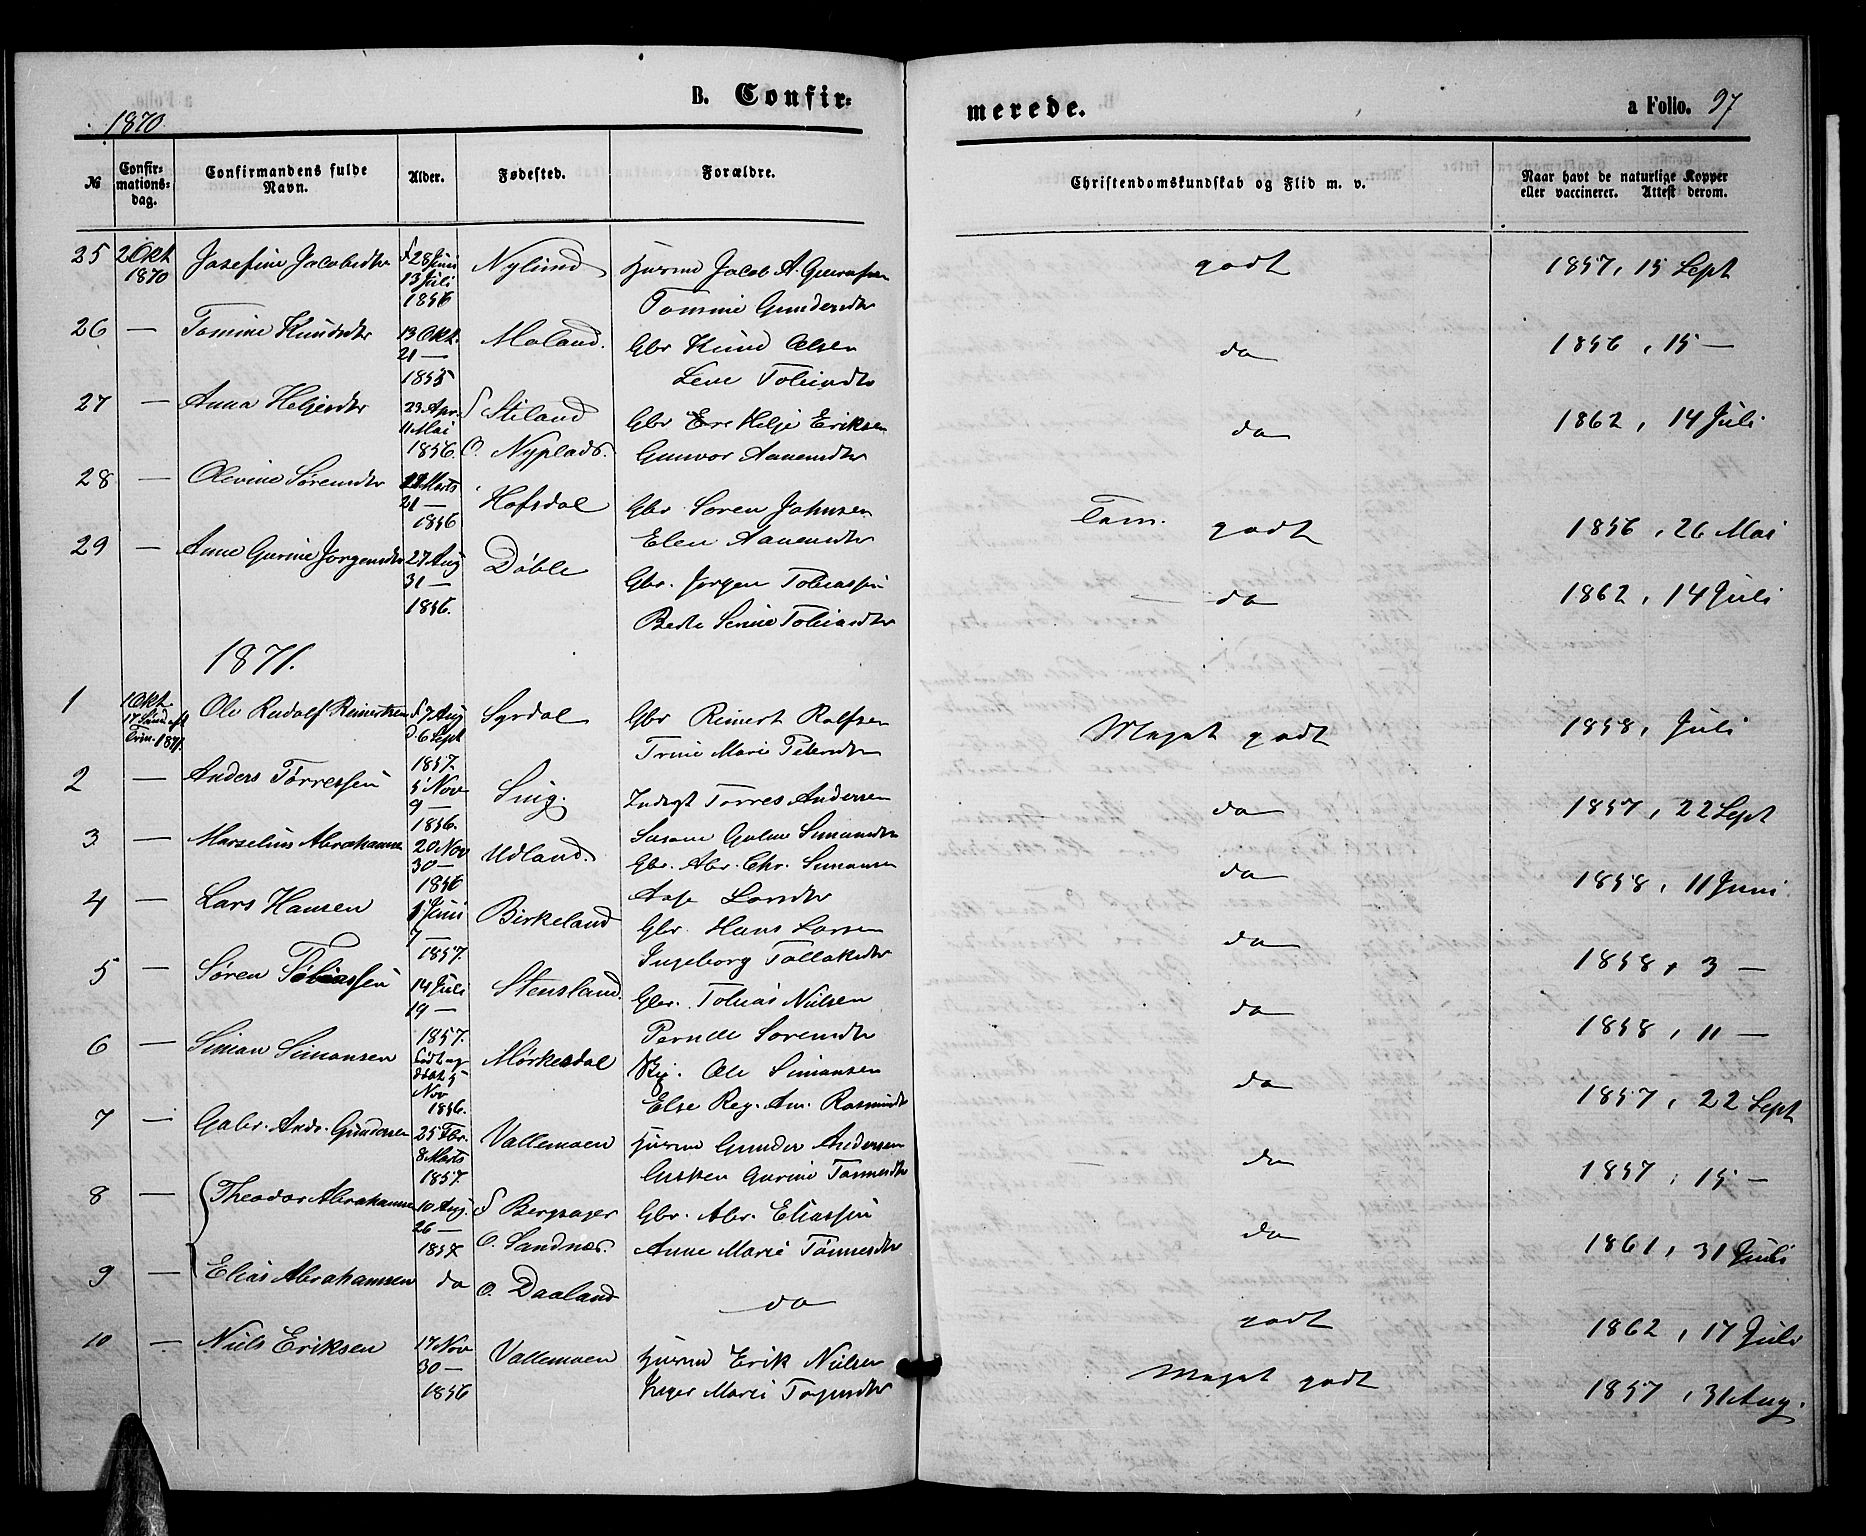 1870
B. Confir=
merede.
a Folio. 97
№
Confir-
mations-
dag.
Confirmandens fulde
Navn.
Alder.
Fødested.
Forældre.
Christendomskundskab og Flid m. v.
Naar havt de naturlige Kopper
eller vaccineret. Attest derom.
25 2 Okt 1870 Josefine Jacobsdtr f 28 Juni 13 Juli 1856 Nylund Husmd Jacob A.
Tomine Gundersdtr godt 1857, 15 Sept
26 — Tomine Knudsdtr 13 Okt. 21 — 1855 Moland. Gbr Knud Olsen
Lene Tobiasdtr do 1856, 15 —
27 — Anna Heljesdtr 23 Apr. 11 Mai 1856. f Stiland O. Nyplads. Gbr Helje Eriksen
Gunvor Aanensdtr do 1862, 14 Juli
28 — Olevine Sørensdtr Marts 21 — 1856 Hofsdal Gbr Søren Johnsen
Elen Aanensdtr Tam. godt 1856, 26 Mai
29 — Anne Gurine Jørgensdtr 27 Aug 31 — 1856. Døble Gbr. Jørgen Tobiassen
Berte Serine Tobiasdtr do 1862, 14 Juli
1871.
1 1 Okt. 17 Sønd eft Trin. 1871. Ole Rudolf Reinertsen f 7 Aug D. 6 Sept 1857. Syrdal Gbr Reinert Rolfsen
Trine Marie Petersdtr Meget godt 1858, Juli
2 — Anders Tørressen 5 Nov 9 — 1856. Snig. Inderst Tørres Andersen
Susane Simonsdtr do 1857, 22 Sept
3 — Marselius Abrahamsen 20 Nov 30 — 1856 Udland. Gbr. Abr. Chr. Simonsen
Aase Larsdtr do 1858, 11 Juni
4 — Lars Hansen 1 Juni 7 — 1857. Birkeland Gbr. Hans Larsen
Ingeborg Tollaksdtr do 1858, 3 —
5 — Søren Tobiassen 14 Juli 19 — 1857. Stensland. Gbr. Tobias Nielsen
Pernille Sørensdtr do 1858, 11 —
6 — Simon Simonsen Født og døbt 5 Nov 1856. Mørkesdal Ole Simonsen
Else Reg. An. Rasmusdtr do 1857, 22 Sept
7 — Gabr. Andr. Gundersen 25 Fbr. 8 Marts 1857. Vallemoen Husmd Gunder Andersen
Gurine Tønnesdtr do 1857, 15 —
8 — Theodor Abrahamsen 10 Aug. 26 — 1857. f Bergsager O. Sandnæs. Gbr. Abr. Eliassen
Anne Marie Tønnesdtr do 1861, 31 Juli
9 — Elias Abrahamsen do O. Daaland do godt 1862, 17 Juli
10 — Niels Eriksen 17 Nov 30 — 1856 Vallemoen Husmd Erik Nielsen
Inger Marie Meget godt 1857, 31 Aug.